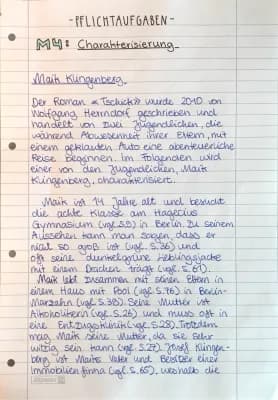 -PFLICHTAUFGABEN-
M4: Charakterisierung
Maik Klingenberg
Der Roman "Tschick" wurde 2010 von
Wolfgang Herrndorf geschrieben und
handelt von zwei Jugendlichen, die
während Abwesenheit ihrer Eltern, mit
einem geklauten Auto eine abenteuerliche
Reise beginnen. Im Folgenden wird
einer von den Jugendlichen, Maik
Klingenberg, charakterisiert.
Maik ist 14 Jahre alt und besucht
die achte Klasse am Hagecius
Gymnasium in Berlin. Zu seinem
Aussehen kann man sagen, dass er
nicht so groß ist (vgl. S. 36) und
oft seine dunkelgrüne Lieblingsjacke
mit einem Drachen trägt (vgl. S. 61).
Maik lebt zusammen mit seinen Eltern in
einem Haus mit Pool (vgl. S. 76) in Berlin-
Marzahn (vgl. S. 38). Seine Mutter ist
Alkoholikerin (vgl. S. 26) und muss oft in
eine Entzugsklinik (vgl. S. 28). Trotzdem
mag Maik seine Mutter, da sie sehr
witzig sein kann (vgl. S. 27). Josef Klingen-
berg ist Maiks Vater und Besitzer einer
Immobilienfirma (vgl. S. 65), weshalb die